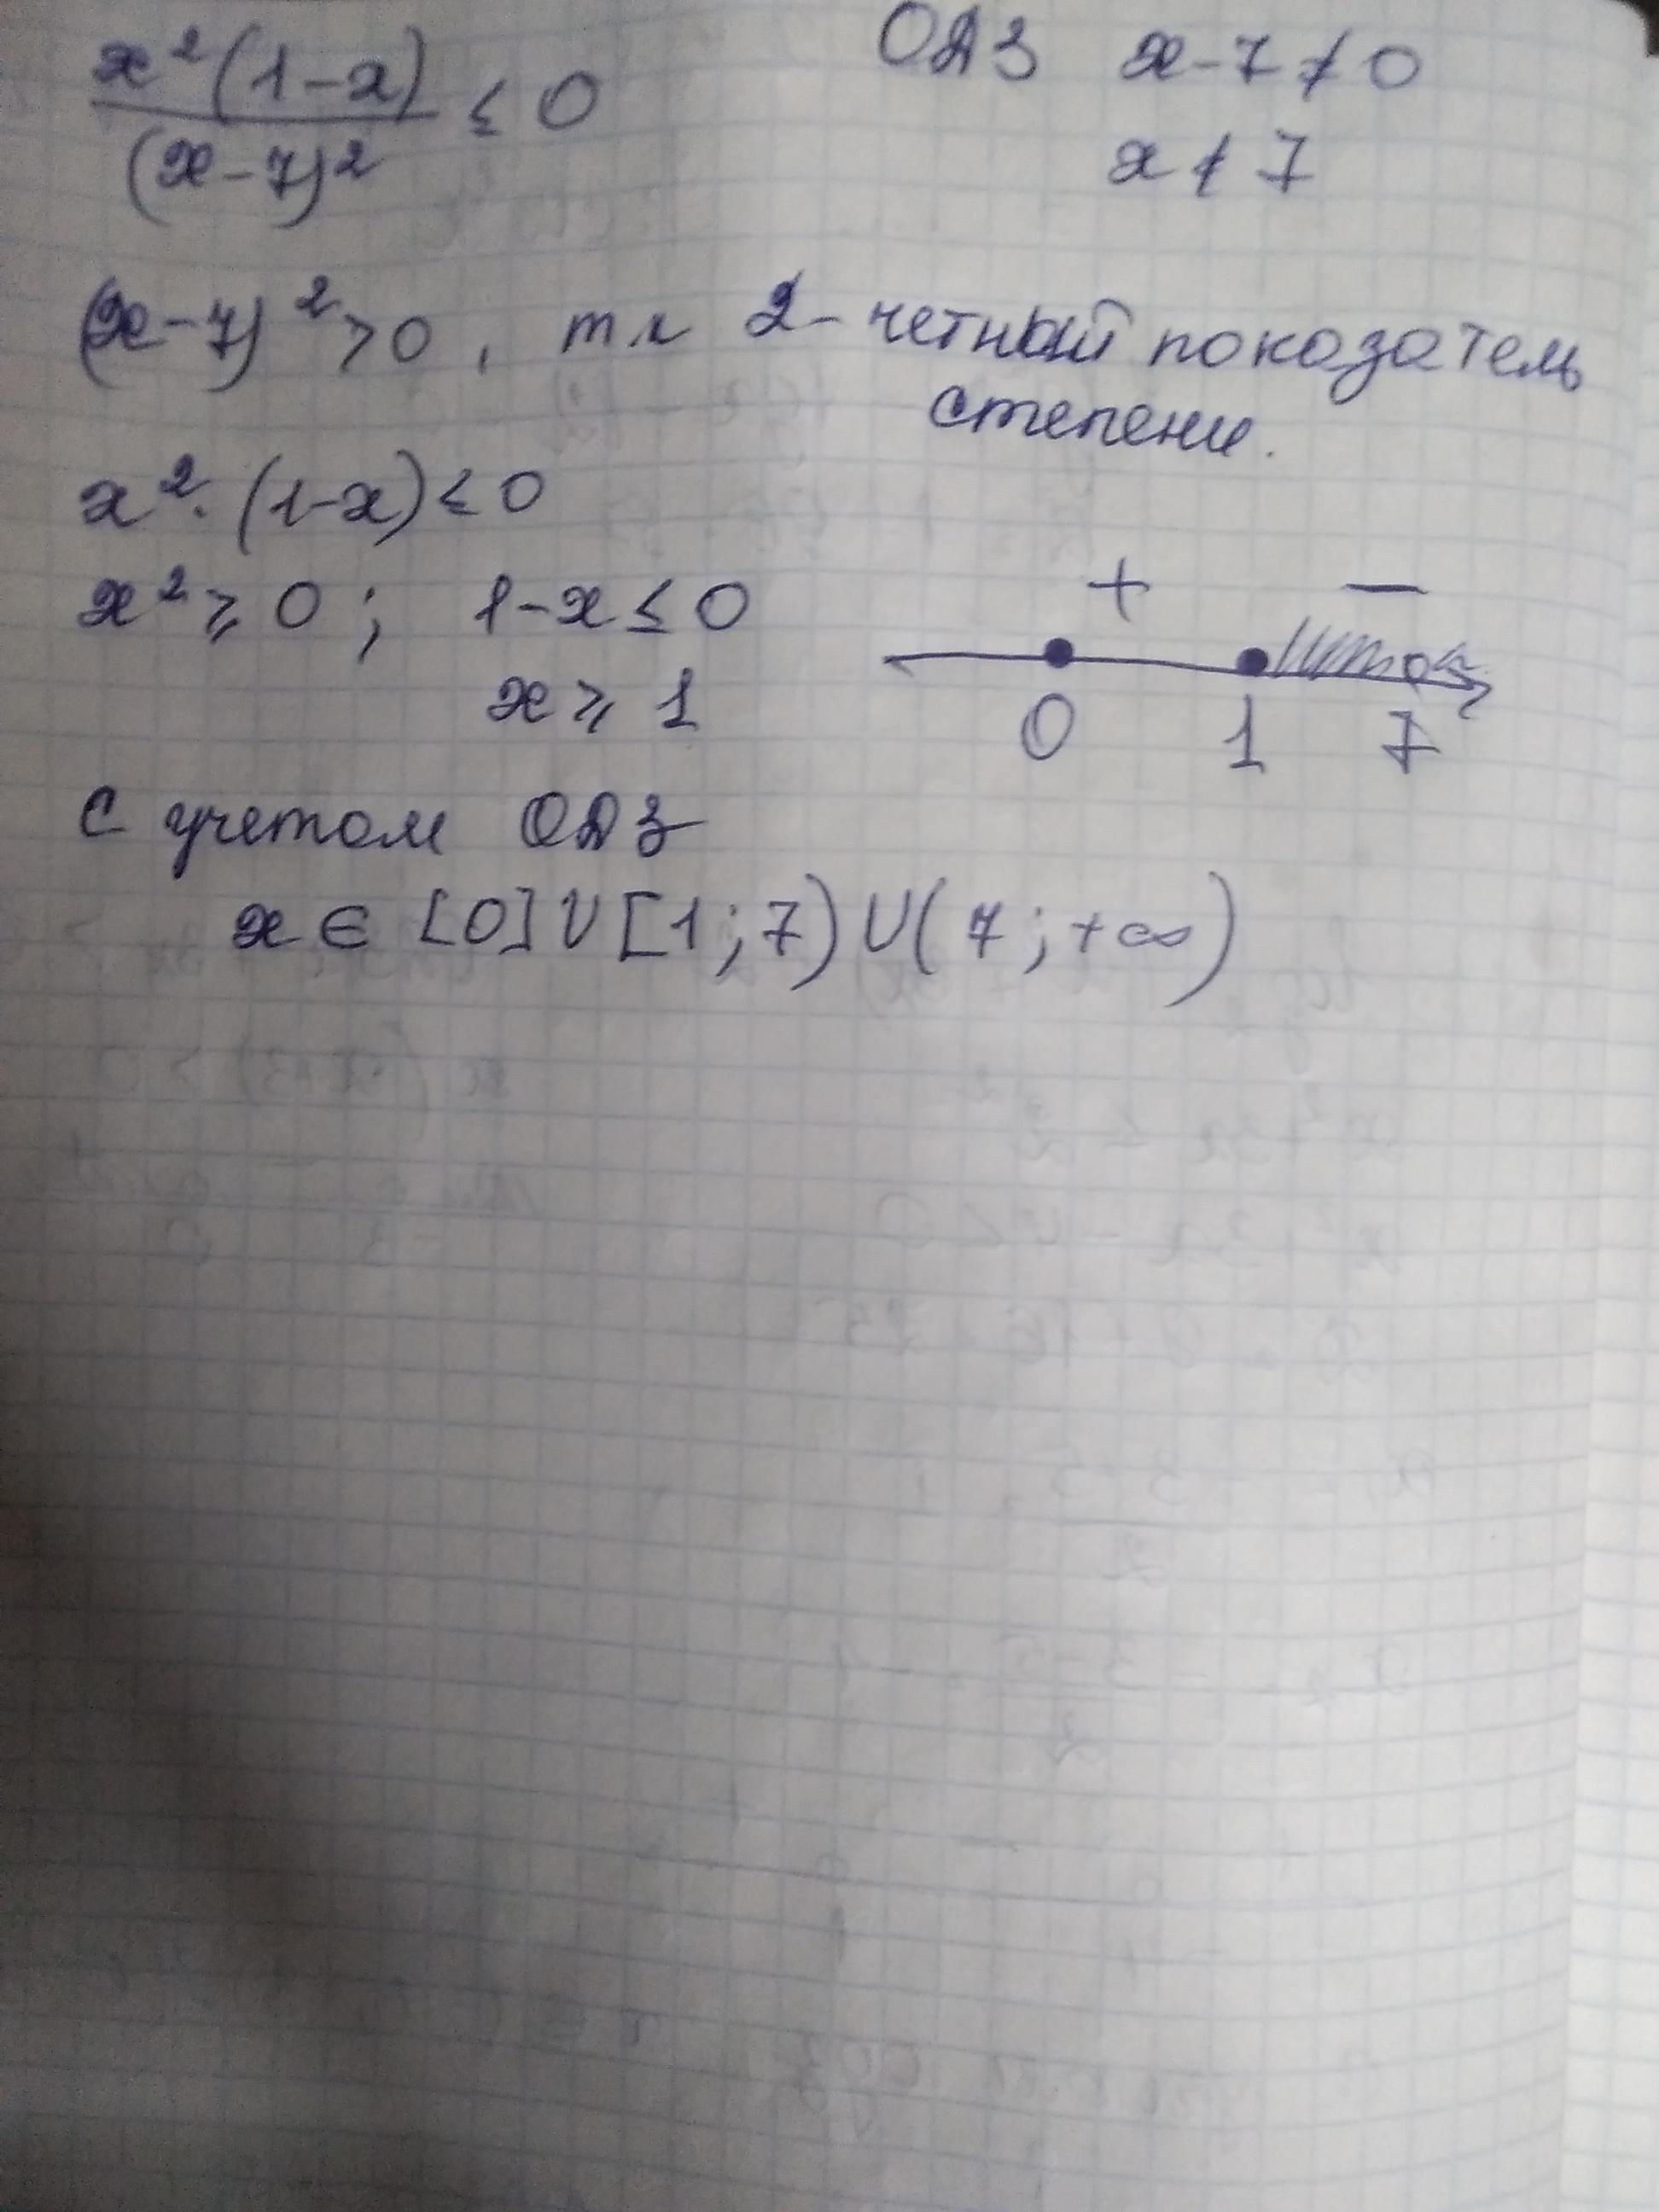 x²(1-x)/(x-7)² ≤ 0
ОДЗ x-7≠0
x≠7
(x-7)²>0, т.к 2-четный показатель
степени.
x²·(1-x)≤0
x²≥0; 1-x≤0
x≥1
+ −
0 1 7
С учетом ОДЗ
x∈[0]U[1;7)U(7;+∞)